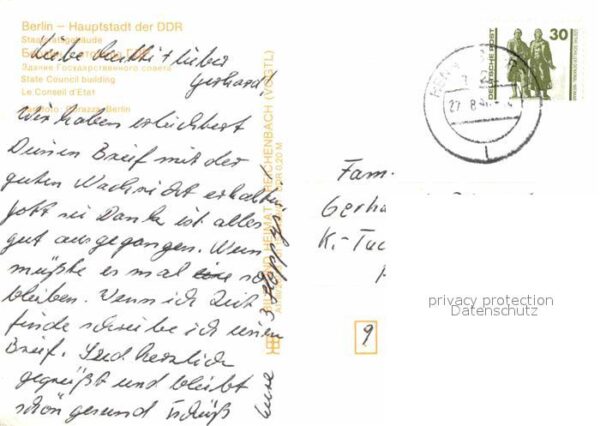 Berlin – Hauptstadt der DDR
Staatsratsgebäude
Здание Государственного совета
State Council building
Le Conseil d'Etat
Berlin
Liebe + lieber
Gerhard!
Wir haben erleichtert
Deinen Brief mit der
guten Nachricht erhalten,
Gott sei Dank ist alles
gut ausgegangen. Nun
müßte es mal so
bleiben. Wenn ich Zeit
finde schreibe ich einen
Brief. Seid herzlich
gegrüßt und bleibt
schön gesund tschüß
Eure 3 Hoppys!
REICHENBACH (VOGTL)
DEUTSCHE POST
30
27.8.
Fam.
Gerha
K.-Tuc
privacy protection
Datenschutz
9